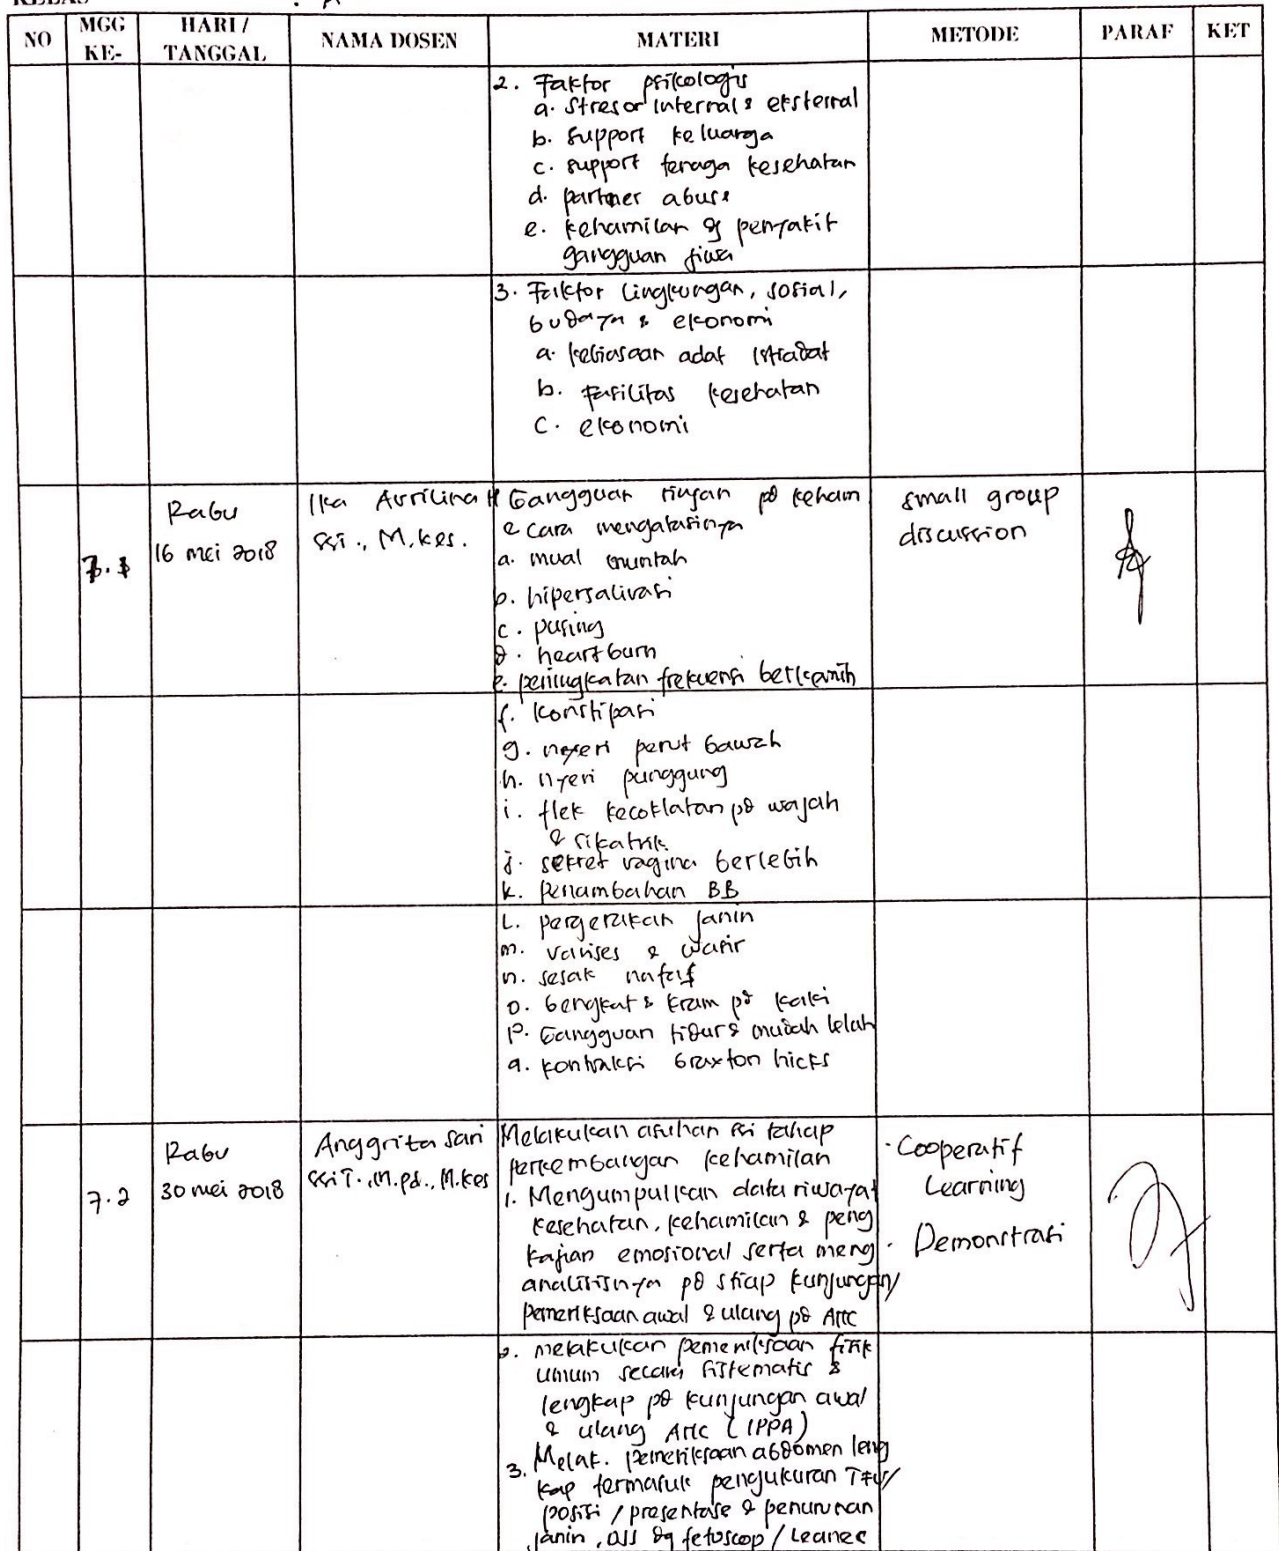 KELAS : A
NO MGG KE- HARI / TANGGAL NAMA DOSEN MATERI METODE PARAF KET
2. Faktor psikologis
a. Stresor internal & eksternal
b. support keluarga
c. support tenaga kesehatan
d. partner abuse
e. kehamilan dg penyakit
gangguan jiwa
3. Faktor lingkungan, sosial,
budaya & ekonomi
a. kebiasaan adat istiadat
b. Fasilitas kesehatan
c. ekonomi
Rabu
16 mei 2018
Ika Avrilina H
SSi., M.kes.
Gangguan ringan pd keham
& cara mengatasinya
a. mual muntah
b. hipersalivasi
c. pusing
d. heartburn
e. peningkatan frekuensi berkemih
small group
discussion
f. Konstipasi
g. nyeri perut bawah
h. nyeri punggung
i. flek kecoklatan pd wajah
& sikatrik
j. sekret vagina berlebih
k. penambahan BB
L. pergerakan janin
m. varises & wasir
n. sesak nafas
o. bengkat & kram pd kaki
p. Gangguan tidur & mudah lelah
q. kontraksi braxton hicks
7.2
Rabu
30 mei 2018
Anggrita Sari
SSiT., M.pd., M.kes
Melakukan asuhan ssi tahap
perkembangan kehamilan
1. Mengumpulkan data riwayat
kesehatan, kehamilan & peng
kajian emosional serta meng
analisisnya pd stiap kunjungan/
pemeriksaan awal & ulang pd ANC
· Cooperatif
Learning
· Demonstrasi
2. melakukan pemeriksaan fisik
umum secara sistematis &
lengkap pd kunjungan awal
& ulang ANC (IPPA)
3. Melak. pemeriksaan abdomen leng
kap termasuk pengukuran TFU/
posisi / presentase & penurunan
janin, dg fetoscop / Leanec